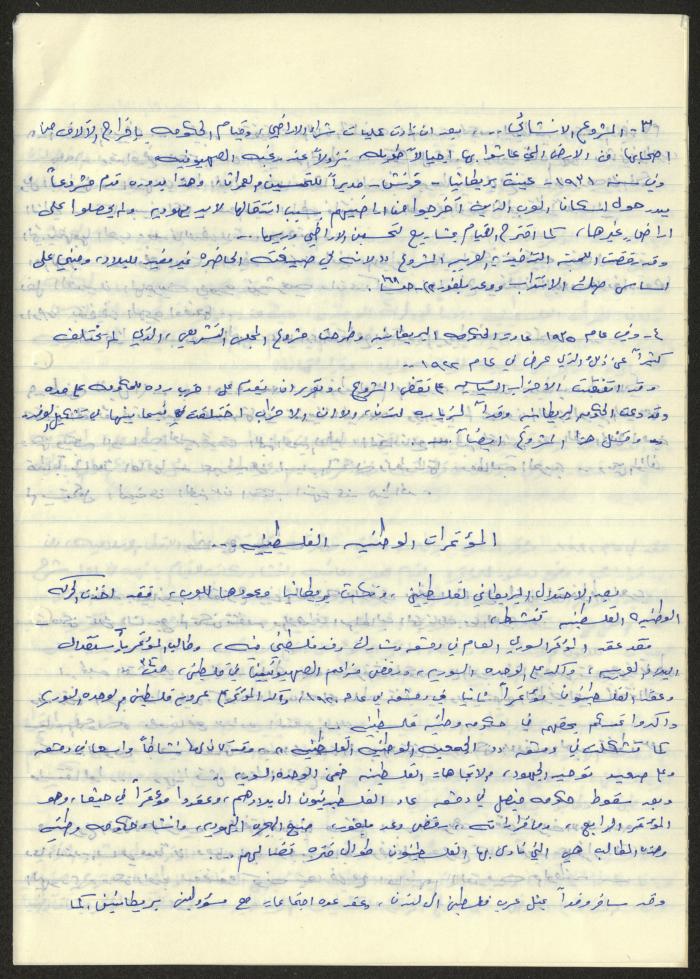 ٣- المشروع الانشائي .. بعد ان زادت عمليات شراء الاراضي، وقيام الحكومه باخراج الآلاف من
اصحابها من الارض التي عاشوا بها اجيالاً طويله نزولاً عند رغبه الصهيونيه
وفي سنه ١٩٣١- عينت بريطانيا - فرنش - مديراً للتحسين والعمران وهذا بدوره قدم مشروعاً
يدور حول اسكان العرب الذين أخرجوا من اراضيهم بسبب انتقالها لايد يهوديه ولم يحصلوا على
اراضٍ غيرها، كما اقترح القيام بمشاريع لتحسين الاراضي وريها ..
وقد رفضت اللجنه التنفيذيه العربيه المشروع "لانه في صيغته الحاضره غير مفيد للبلاد، ومبني على
اساس صك الانتداب ووعد بلفور
٤- وفي عام ١٩٣٥ عادت الحكومه البريطانيه وطرحت مشروع المجلس التشريعي، الذي لم يختلف
كثيراً عن الذي عرض في عام ١٩٢٢ ..
وقد اتفقت الاحزاب السياسيه على نقض المشروع وتقرر ان يقدم كل حزب رده للحكومه على حده
وقد دعت الحكومه البريطانيه وفداً لزياره لندن، الا ان الاحزاب اختلفت فيما بينها في تشكيل الوفد
وفشل هذا المشروع ايضاً ..
المؤتمرات الوطنيه الفلسطينيه ...
بعد الاحتلال البريطاني لفلسطين، ونكثت بريطانيا وعودها للعرب، فقد اخذت الحركه
الوطنيه الفلسطينيه تنشط.
فقد عقد المؤتمر السوري العام في دمشق وشارك وفد فلسطيني فيه، وطالب المؤتمر باستقلال
البلاد العربيه، وأكد على الوحده السوريه، ورفض مزاعم الصهيونيين في فلسطين،
وعقد الفلسطينيون مؤتمراً ثانيا في دمشق في عام ١٩٢٠، وأكد المؤتمر على عروبه فلسطين والوحده السوريه
واكدوا تمسكهم بحقهم في حكومه وطنيه فلسطينيه ..
كما تشكلت في دمشق "الجمعيه الوطنيه الفلسطينيه"، وقد كان لها نشاطاً واسعا في دمشق
وعلى صعيد توحيد الجهود، والاتجاهات الفلسطينيه ضمن الوحده السوريه
وبعد سقوط حكومه فيصل في دمشق عاد الفلسطينيون الى بلادهم، وعقدوا مؤتمراً في حيفا، وهو
المؤتمر الرابع، ومن قراراته، رفض وعد بلفور، منع الهجره اليهوديه، وانشاء حكومه وطنيه
وهذه المطالب هي التي نادى بها الفلسطينيون طوال فتره نضالهم ...
وقد سافر وفداً يمثل عرب فلسطين الى لندن، وعقد عده اجتماعات مع مسؤولين بريطانيين، كما